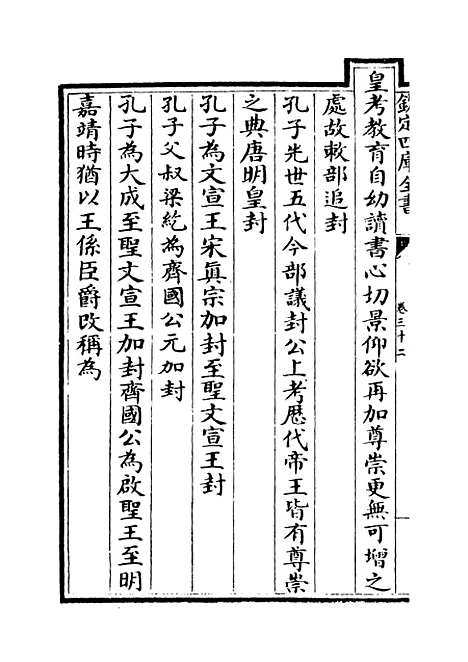 欽定四庫全書
卷三十二
皇考教育自幼讀書心切景仰欲再加尊崇更無可增之
處故敕部追封
孔子先世五代今部議封公上考歷代帝王皆有尊崇
之典唐明皇封
孔子為文宣王宋真宗加封至聖文宣王封
孔子父叔梁紇為齊國公元加封
孔子為大成至聖文宣王加封齊國公為啟聖王至明
嘉靖時猶以王係臣爵改稱為